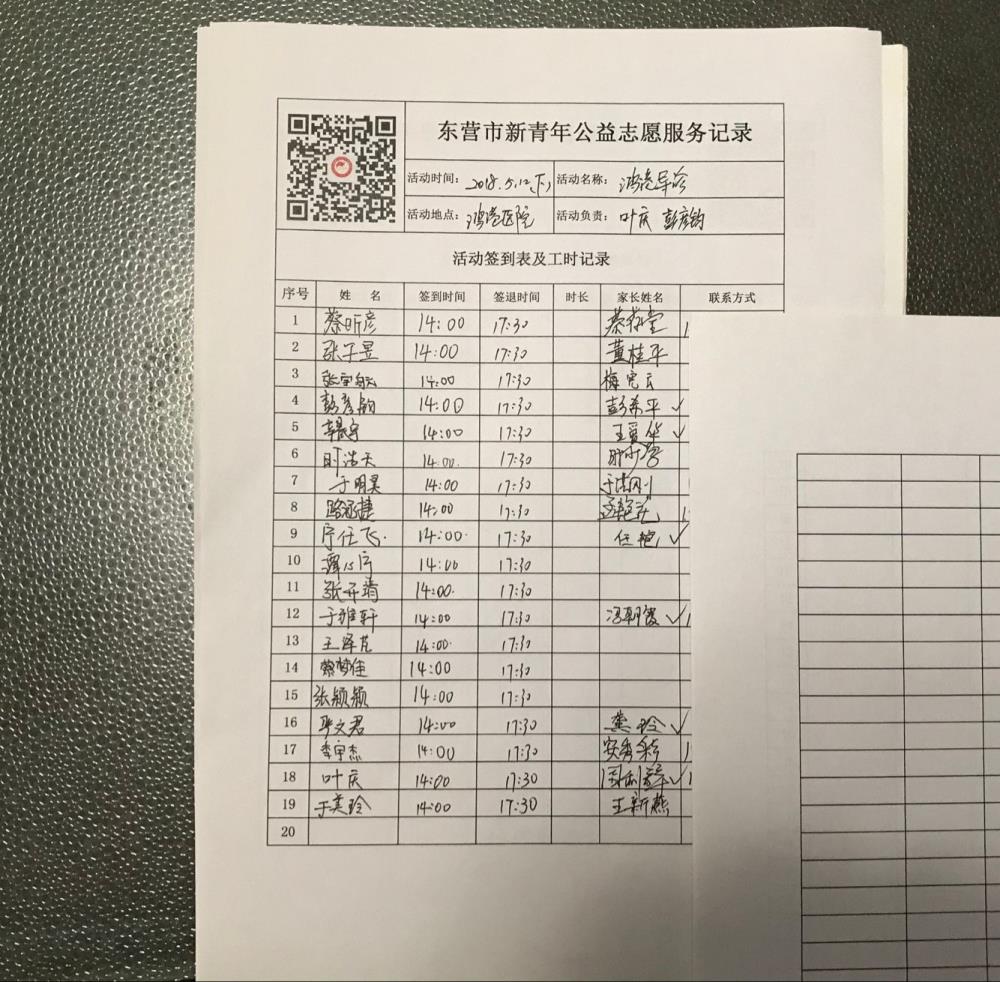 东营市新青年公益志愿服务记录
活动时间： 2018.5.12(下) 活动名称： 鸿港导诊
活动地点： 鸿港医院 活动负责： 叶庆 彭彦钧
活动签到表及工时记录
序号 姓 名 签到时间 签退时间 时长 家长姓名 联系方式
1 蔡昕彦 14:00 17:30
2 张子昱 14:00 17:30 董桂平
3 14:00 17:30 梅宪云
4 彭彦钧 14:00 17:30 彭希平 ✓
5 14:00 17:30 王爱华 ✓
6 时浩天 14:00. 17:30
7 于明昊 14:00 17:30
8 路永捷 14:00 17:30
9 宁任飞. 14:00. 17:30 任艳 ✓
10 14:00 17:30
11 张开靖 14:00. 17:30
12 于雅轩 14:00 17:30 冯朝霞 ✓
13 王泽芃 14:00. 17:30
14 蔡梦佳 14:00 17:30
15 张颖颖 14:00 17:30
16 毕文君 14:00 17:30 龚玲 ✓
17 李宇杰 14:00 17:30 安秀彩
18 叶庆 14:00 17:30 ✓
19 于美玲 14:00 17:30 王新燕
20